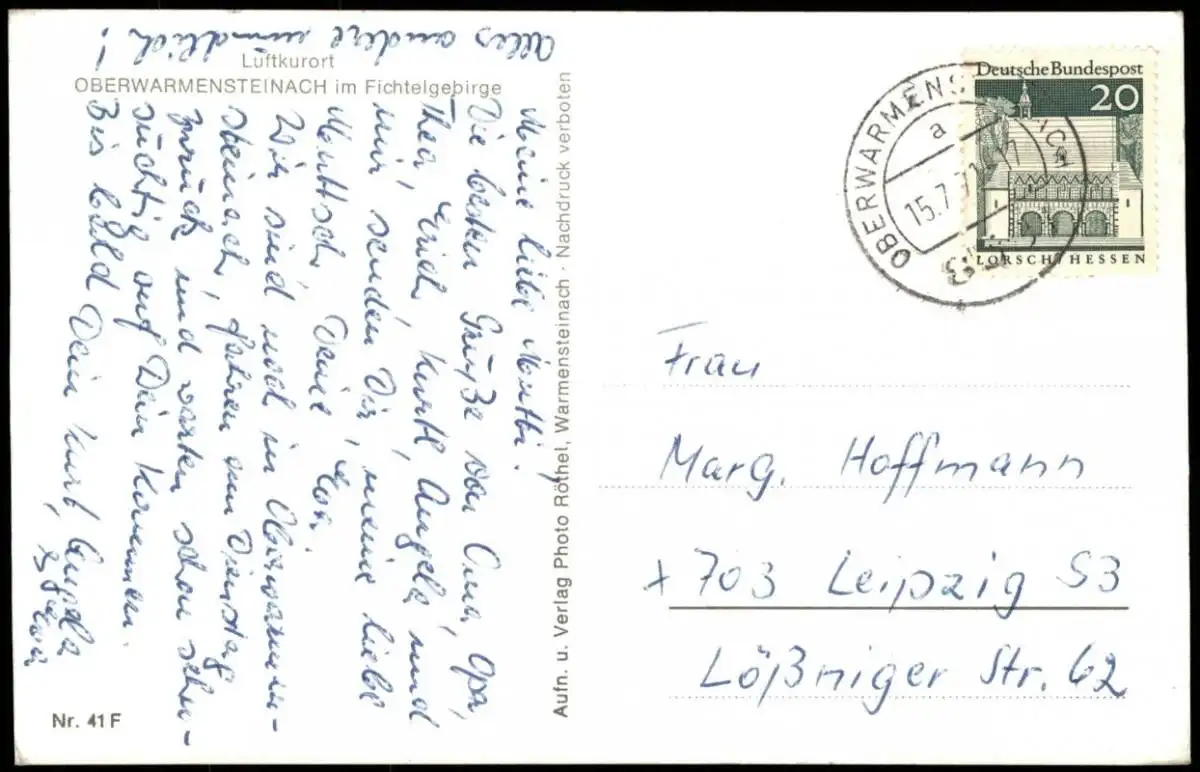 Luftkurort
OBERWARMENSTEINACH im Fichtelgebirge
Meine liebe
Die besten Grüße von Oma, Opa,
Thea, Erich, Kurtl, Angela und
mir, senden Dir, meine liebe
Deine
Wir sind noch in Oberwarmen-
steinach, fahren am Dienstag
zurück und warten schon sehn-
süchtig auf Dein Kommen.
Bis bald Dein Kurt, Angela
Alles andere mündlich!
Nr. 41 F
Aufn. u. Verlag Photo Röthel, Warmensteinach · Nachdruck verboten
Deutsche Bundespost
20
LORSCH/HESSEN
a
15.7.
Frau
Marg. Hoffmann
x 703 Leipzig S3
Lößniger Str. 62